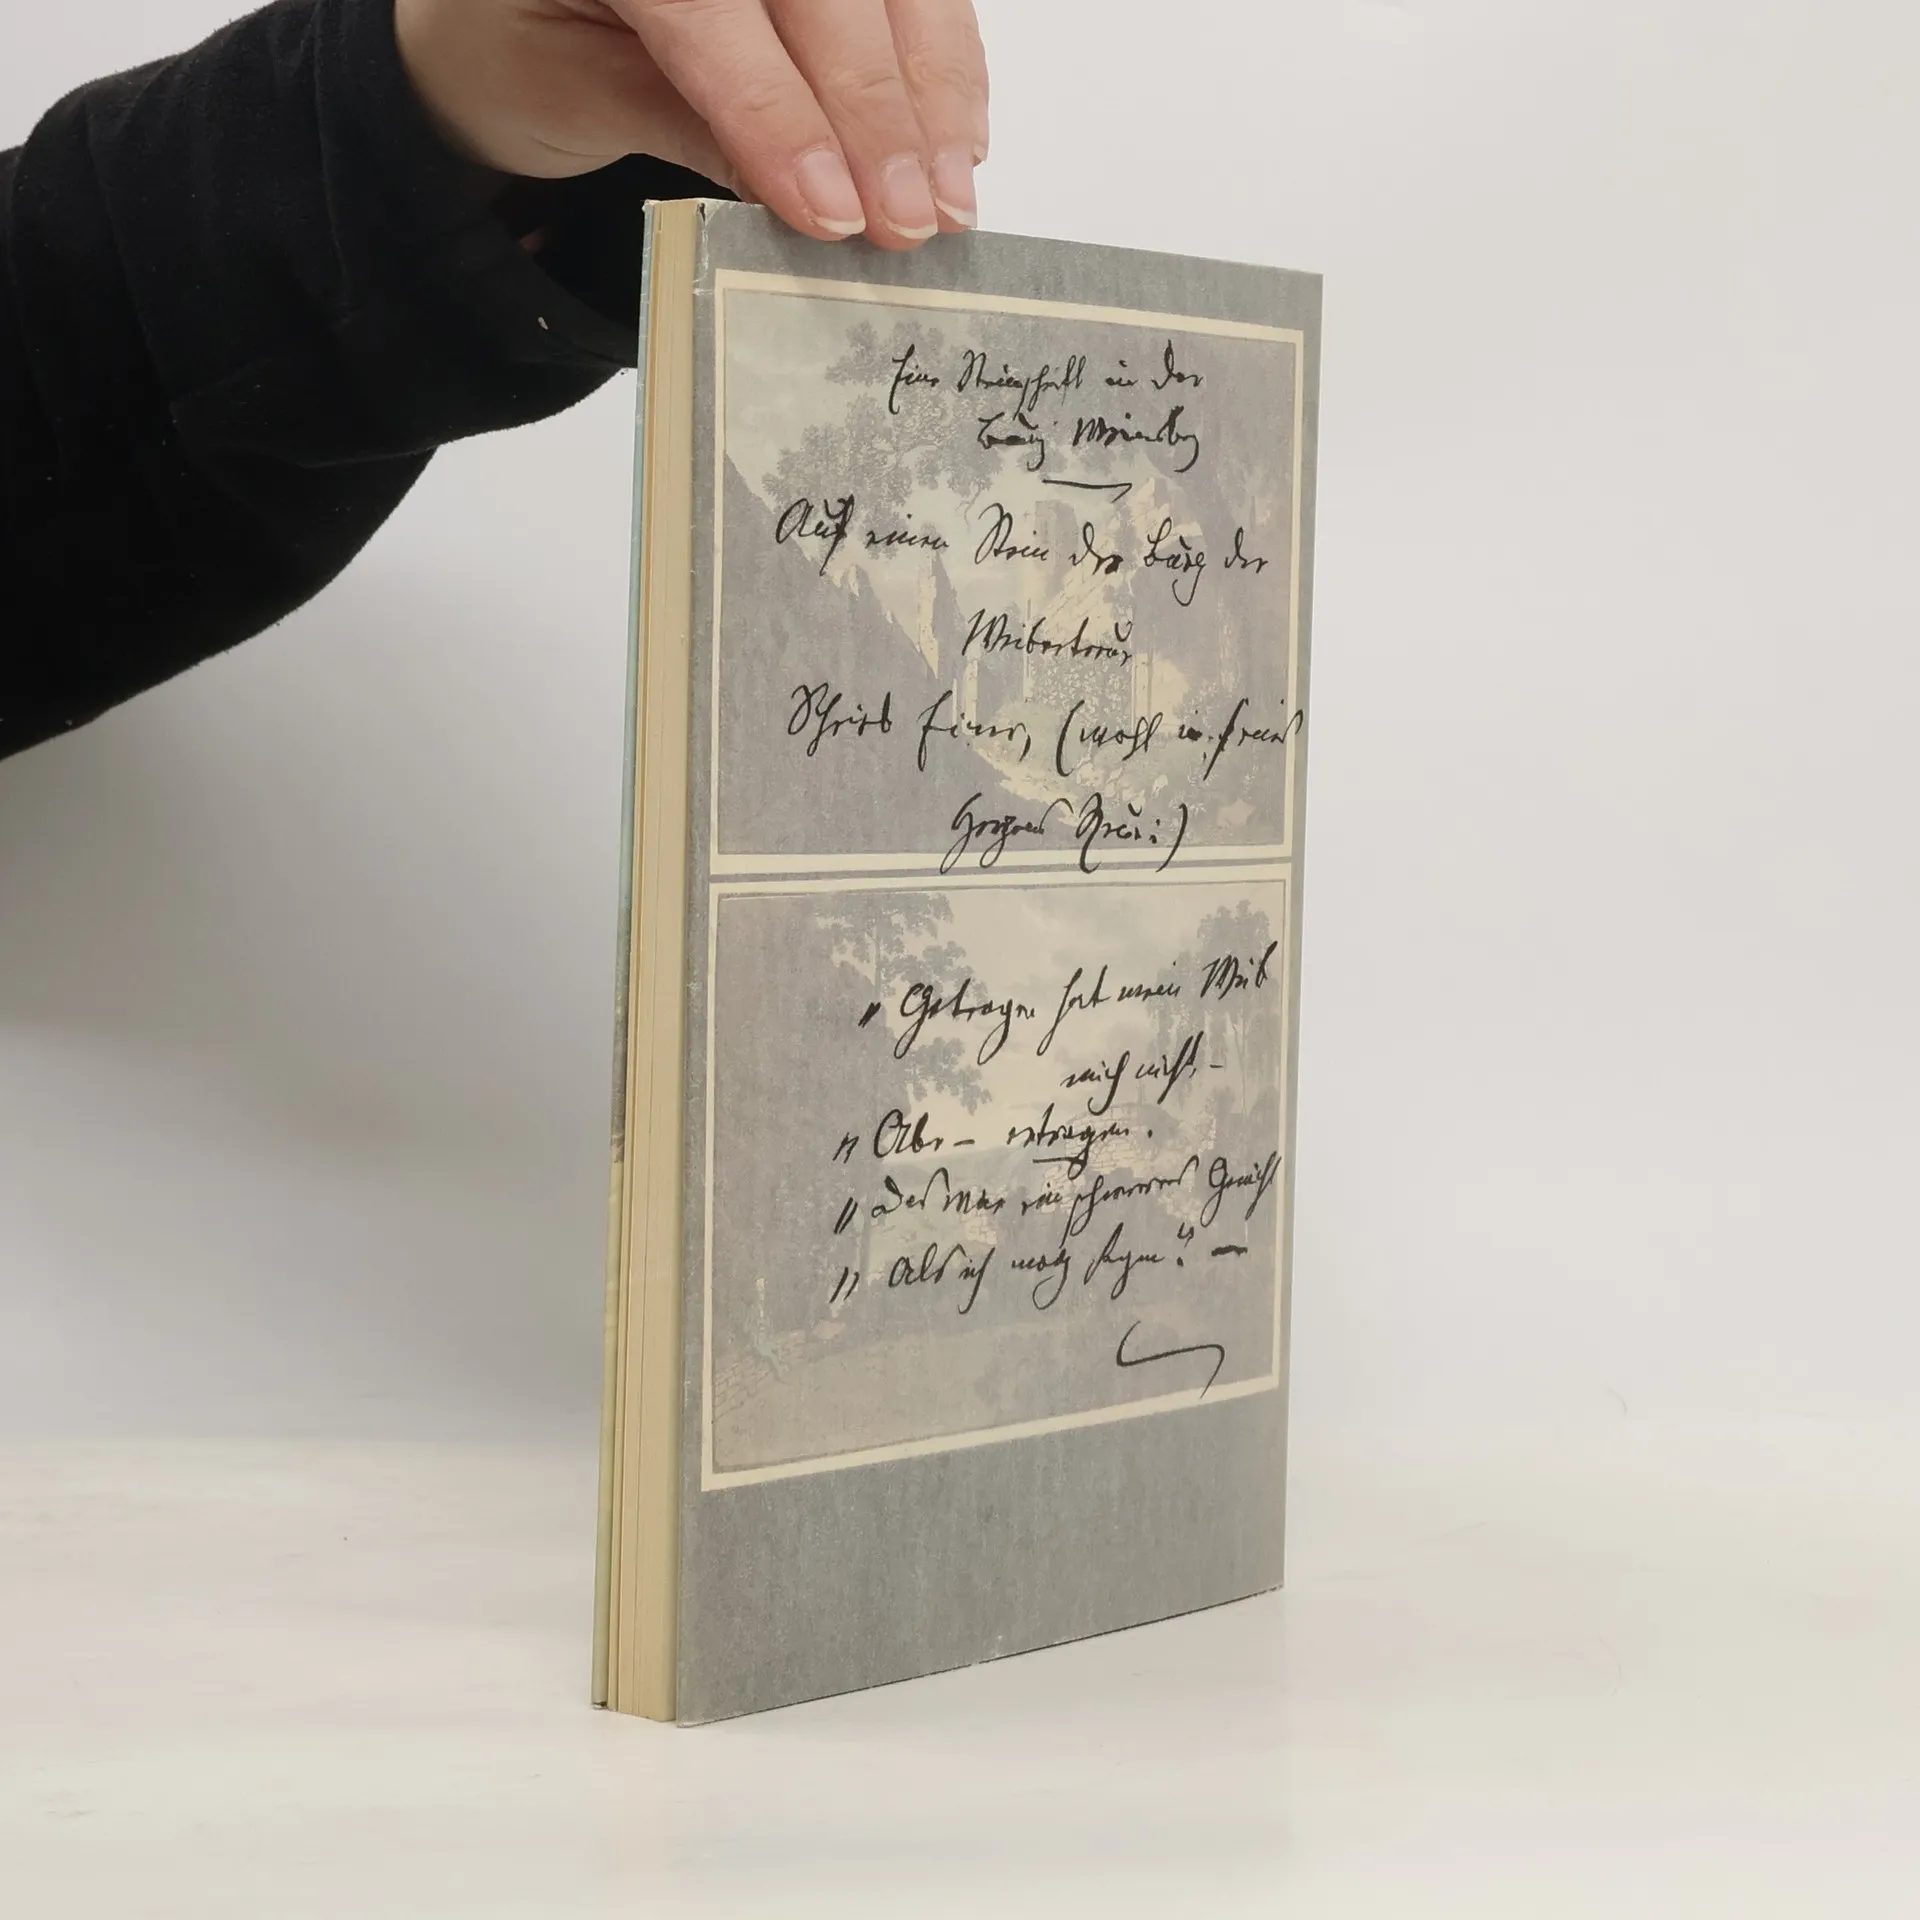 Eine Steinschrift in der
Burg Weinsberg
Auf einen Stein der Burg der
Weibertreu
Schrieb Einer, (wohl in seines
Herzens Reu:)
„Getragen hat mein Weib
mich nicht, –
„Aber – ertragen.
„Das war ein schwereres Gewicht
„Als ich mag sagen." –